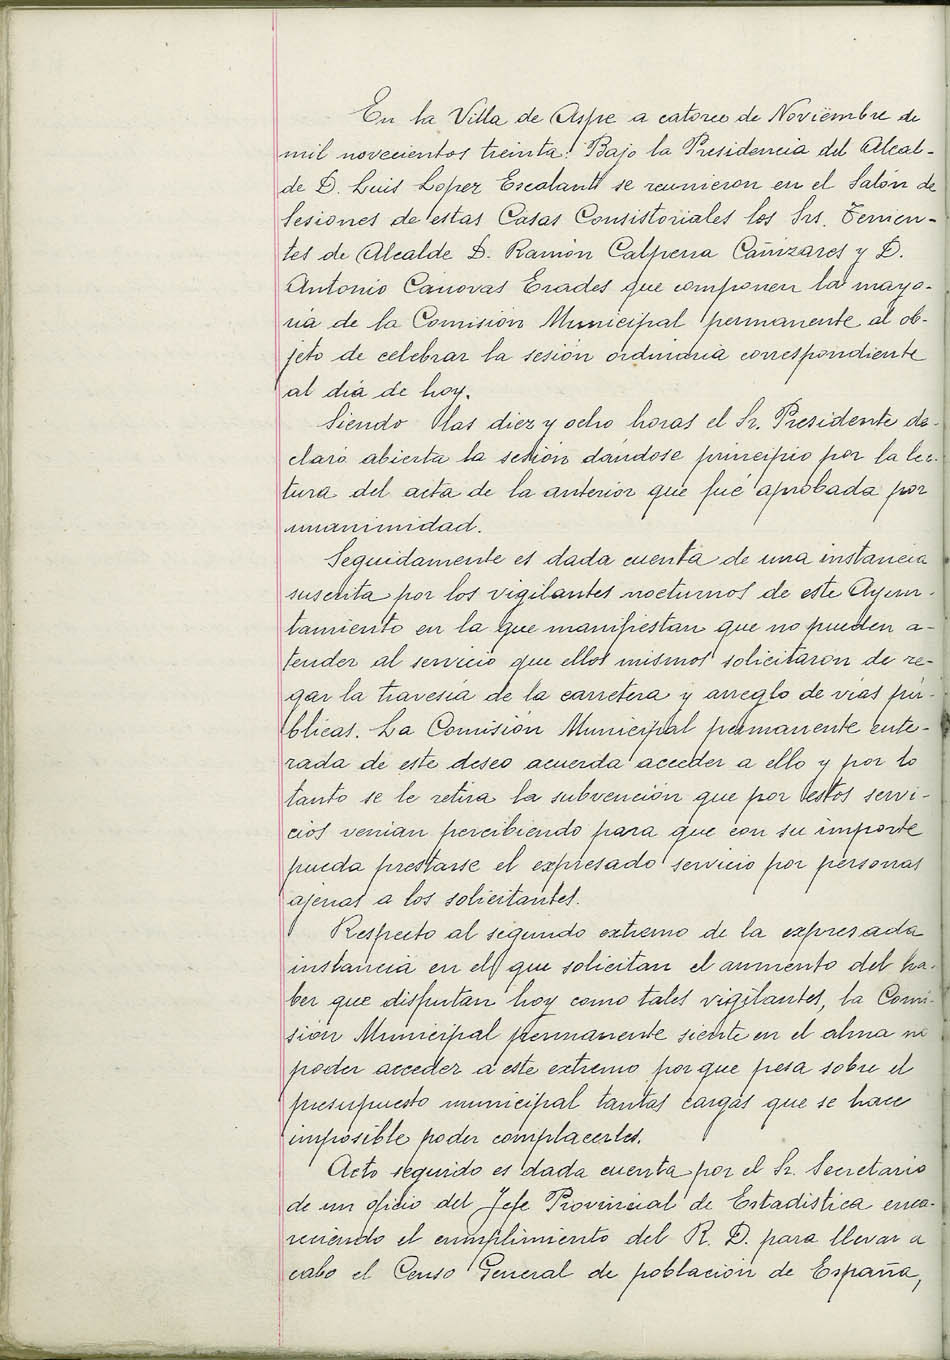 En la Villa de Aspe a catorce de Noviembre de
mil novecientos treinta: Bajo la Presidencia del Alcal-
de D. Luis Lopez Escalant se reunieron en el Salón de
Sesiones de estas Casas Consistoriales los Srs. Tenien-
tes de Alcalde D. Ramón Calpena Cañizares y D.
Antonio Cánovas Erades que componen la mayo-
ria de la Comisión Municipal permanente al ob-
jeto de celebrar la sesión ordinaria correspondiente
al dia de hoy.
Siendo las diez y ocho horas el Sr. Presidente de-
claró abierta la sesión dándose principio por la lec-
tura del acta de la anterior que fué aprobada por
unanimidad.
Seguidamente es dada cuenta de una instancia
suscrita por los vigilantes nocturnos de este Ayun-
tamiento en la que manifiestan que no pueden a-
tender al servicio que ellos mismos solicitaron de re-
gar la travesia de la carretera y arreglo de vias pú-
blicas. La Comisión Municipal permanente ente-
rada de este deseo acuerda acceder a ello y por lo
tanto se le retira la subvención que por estos servi-
cios venian percibiendo para que con su importe
pueda prestarse el expresado servicio por personas
ajenas a los solicitantes.
Respecto al segundo extremo de la expresada
instancia en el que solicitan el aumento del ha-
ber que disfrutan hoy como tales vigilantes, la Comi-
sión Municipal permanente siente en el alma no
poder acceder a este extremo porque pesa sobre el
presupuesto municipal tantas cargas que se hace
imposible poder complacerles.
Acto seguido es dada cuenta por el Sr. Secretario
de un oficio del Jefe Provincial de Estadistica enca-
reciendo el cumplimiento del R. D. para llevar a
cabo el Censo General de población de España,